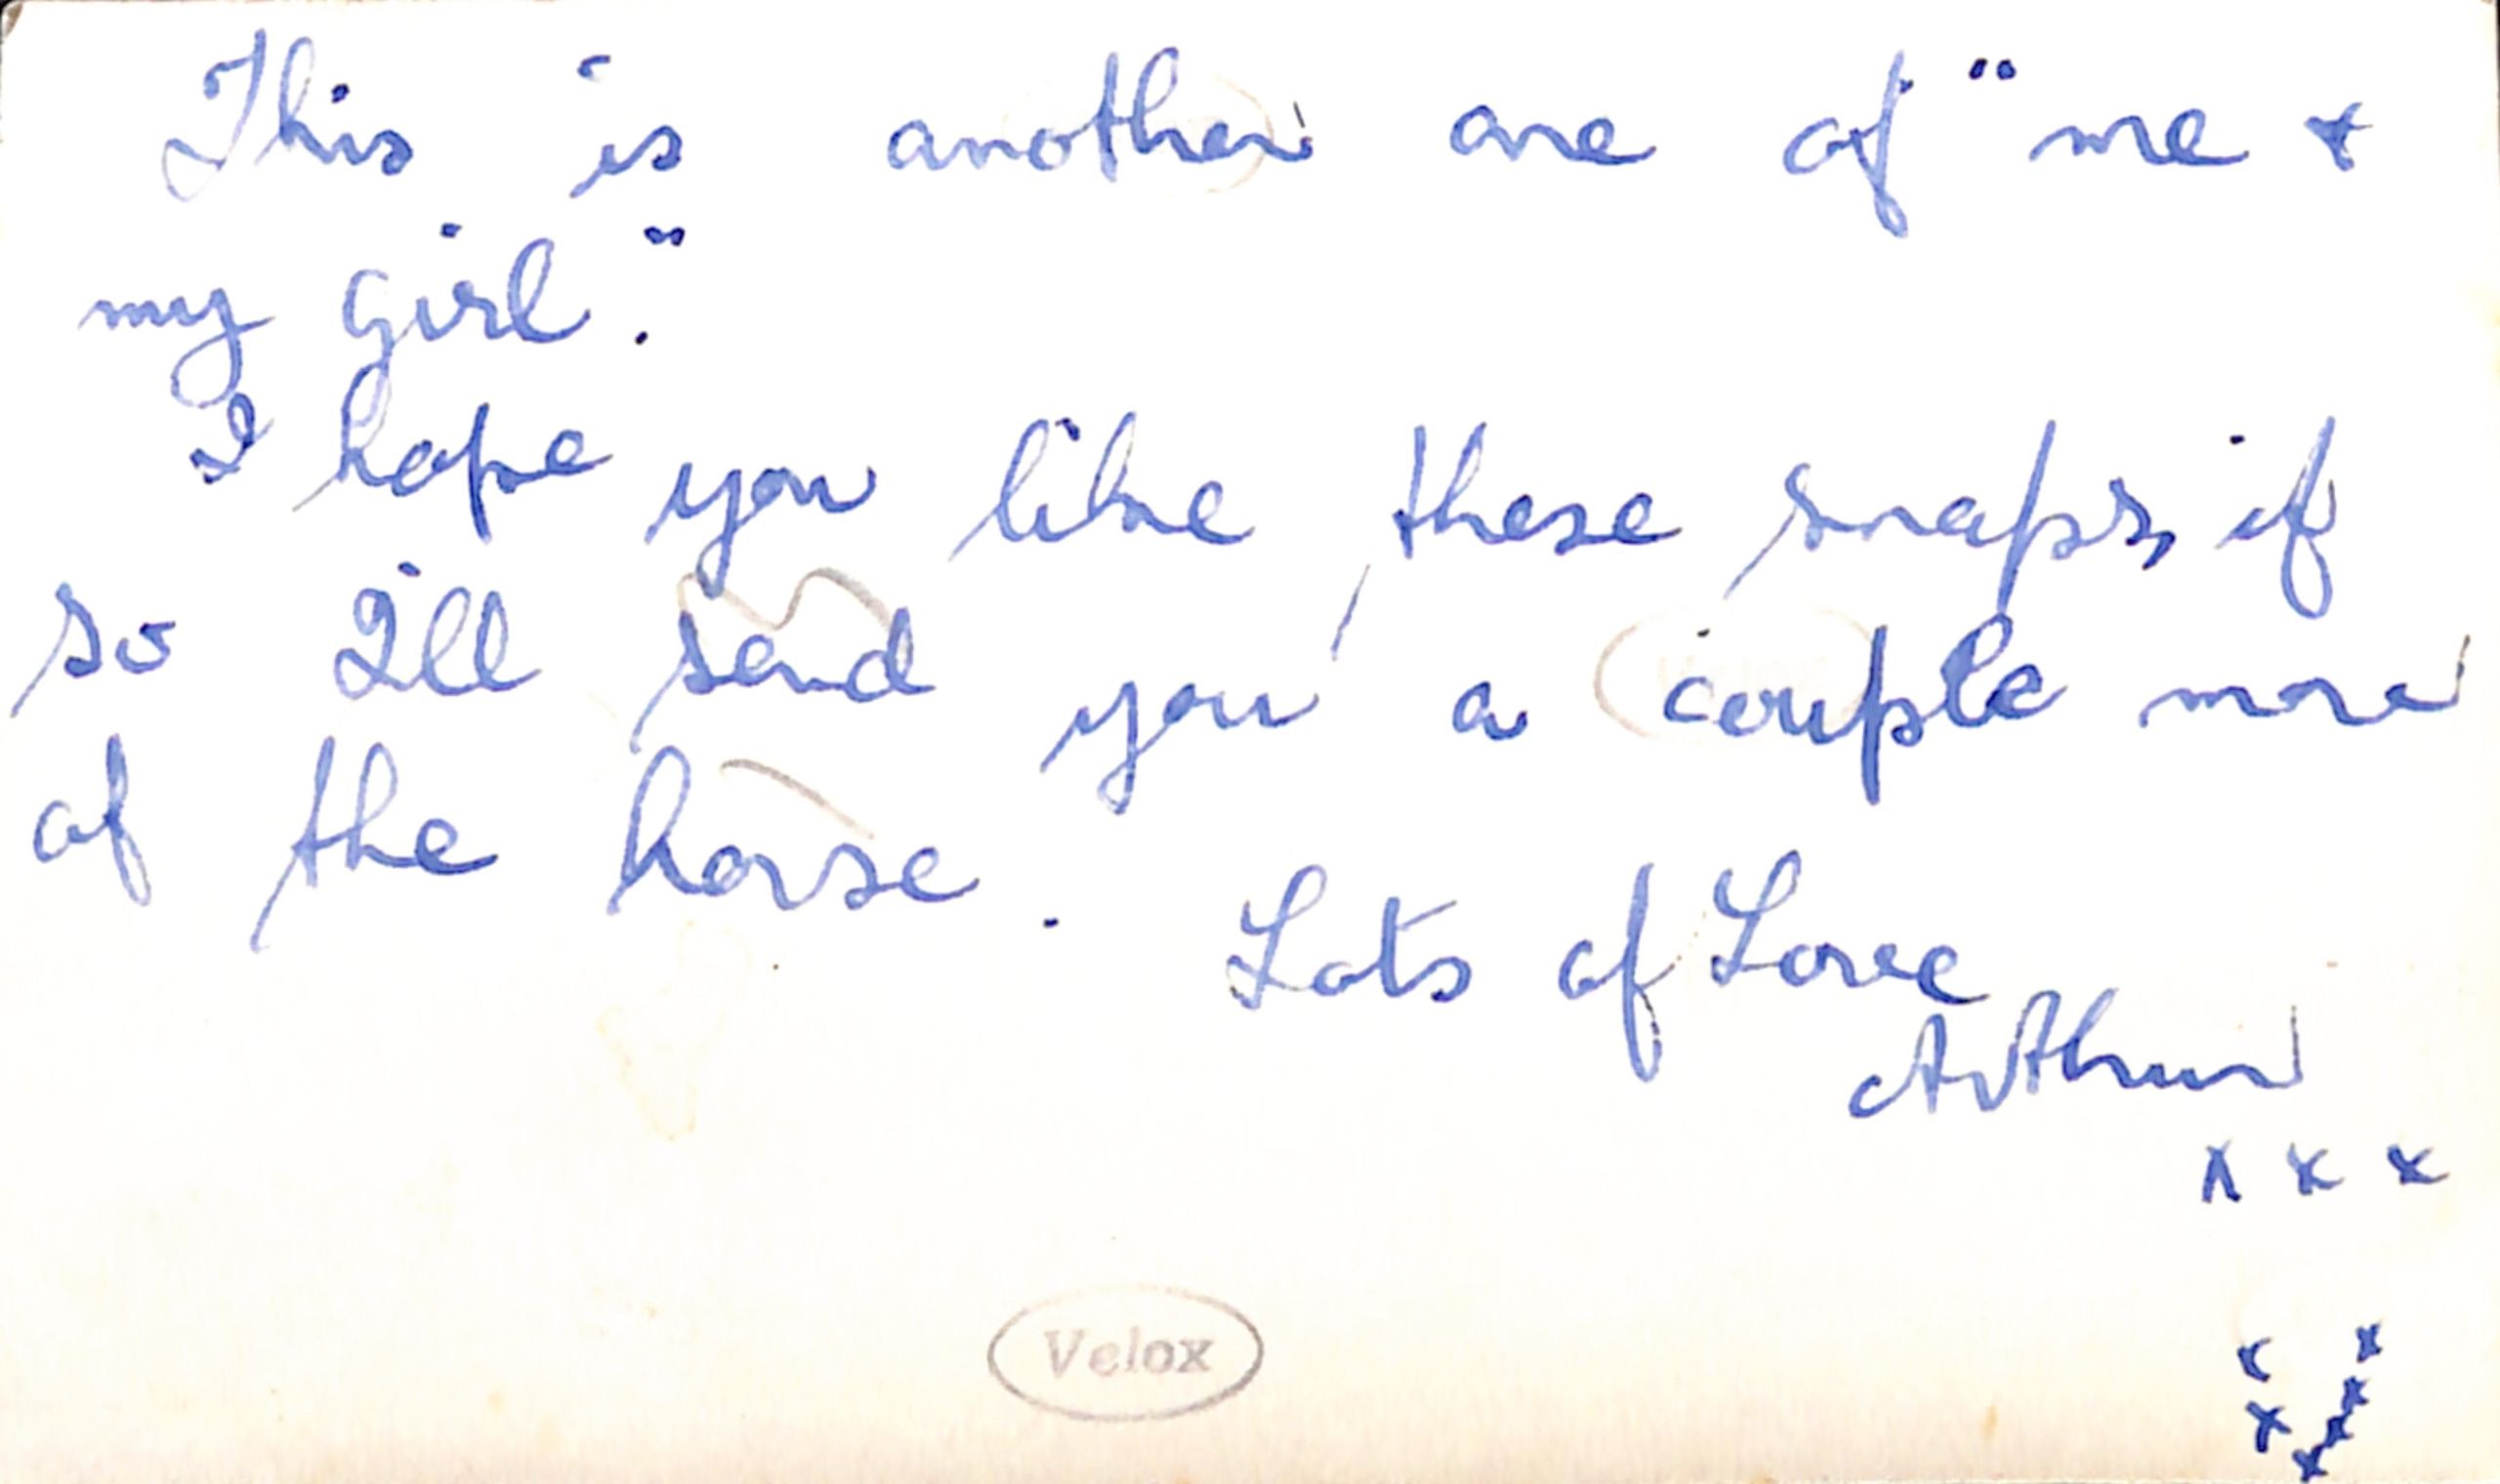 This is another one of "me +
my girl".
I hope you like these snaps, if
so I'll send you a couple more
of the horse. Lots of Love
Arthur
x x x
x x
x x
x
x
Velox